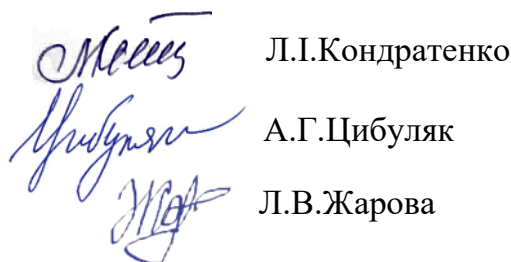 Л.І.Кондратенко
А.Г.Цибуляк
Л.В.Жарова